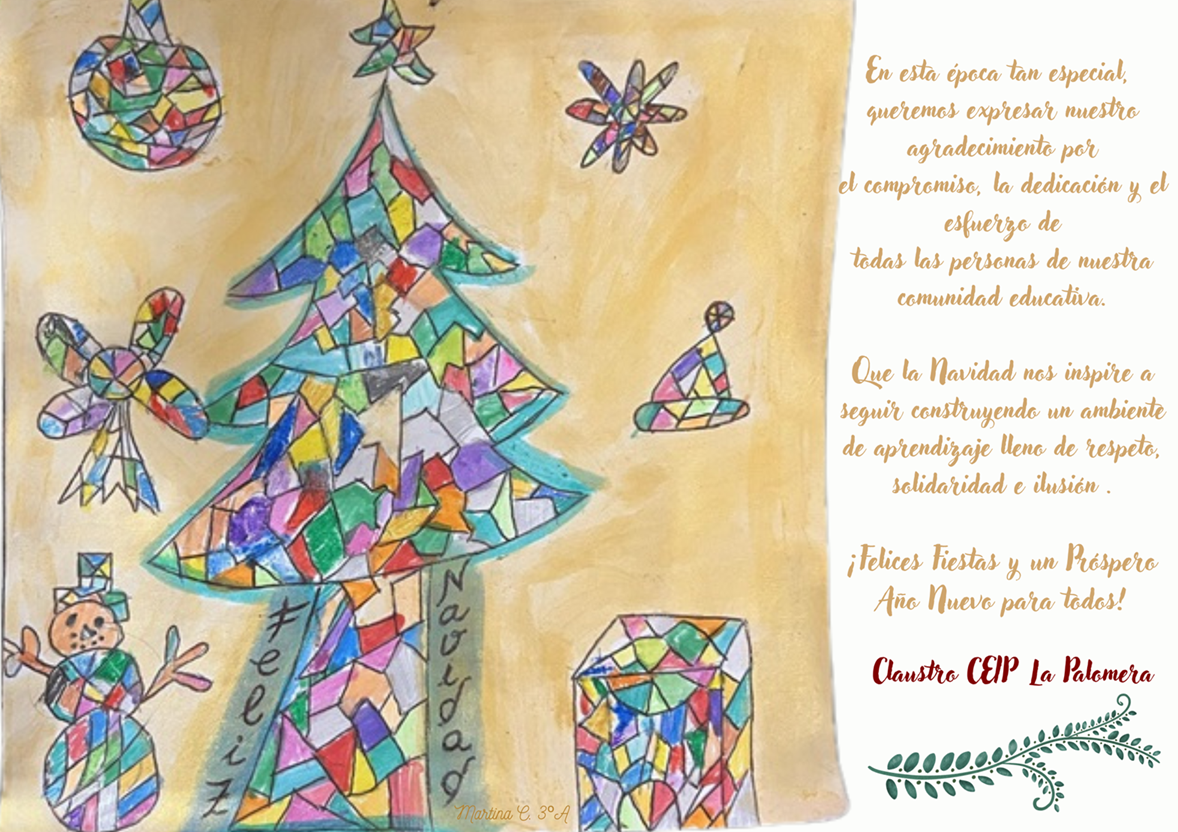 Feliz
Navidad
Martina C. 3º A
En esta época tan especial,
queremos expresar nuestro
agradecimiento por
el compromiso, la dedicación y el
esfuerzo de
todas las personas de nuestra
comunidad educativa.
Que la Navidad nos inspire a
seguir construyendo un ambiente
de aprendizaje lleno de respeto,
solidaridad e ilusión .
¡Felices Fiestas y un Próspero
Año Nuevo para todos!
Claustro CEIP La Palomera